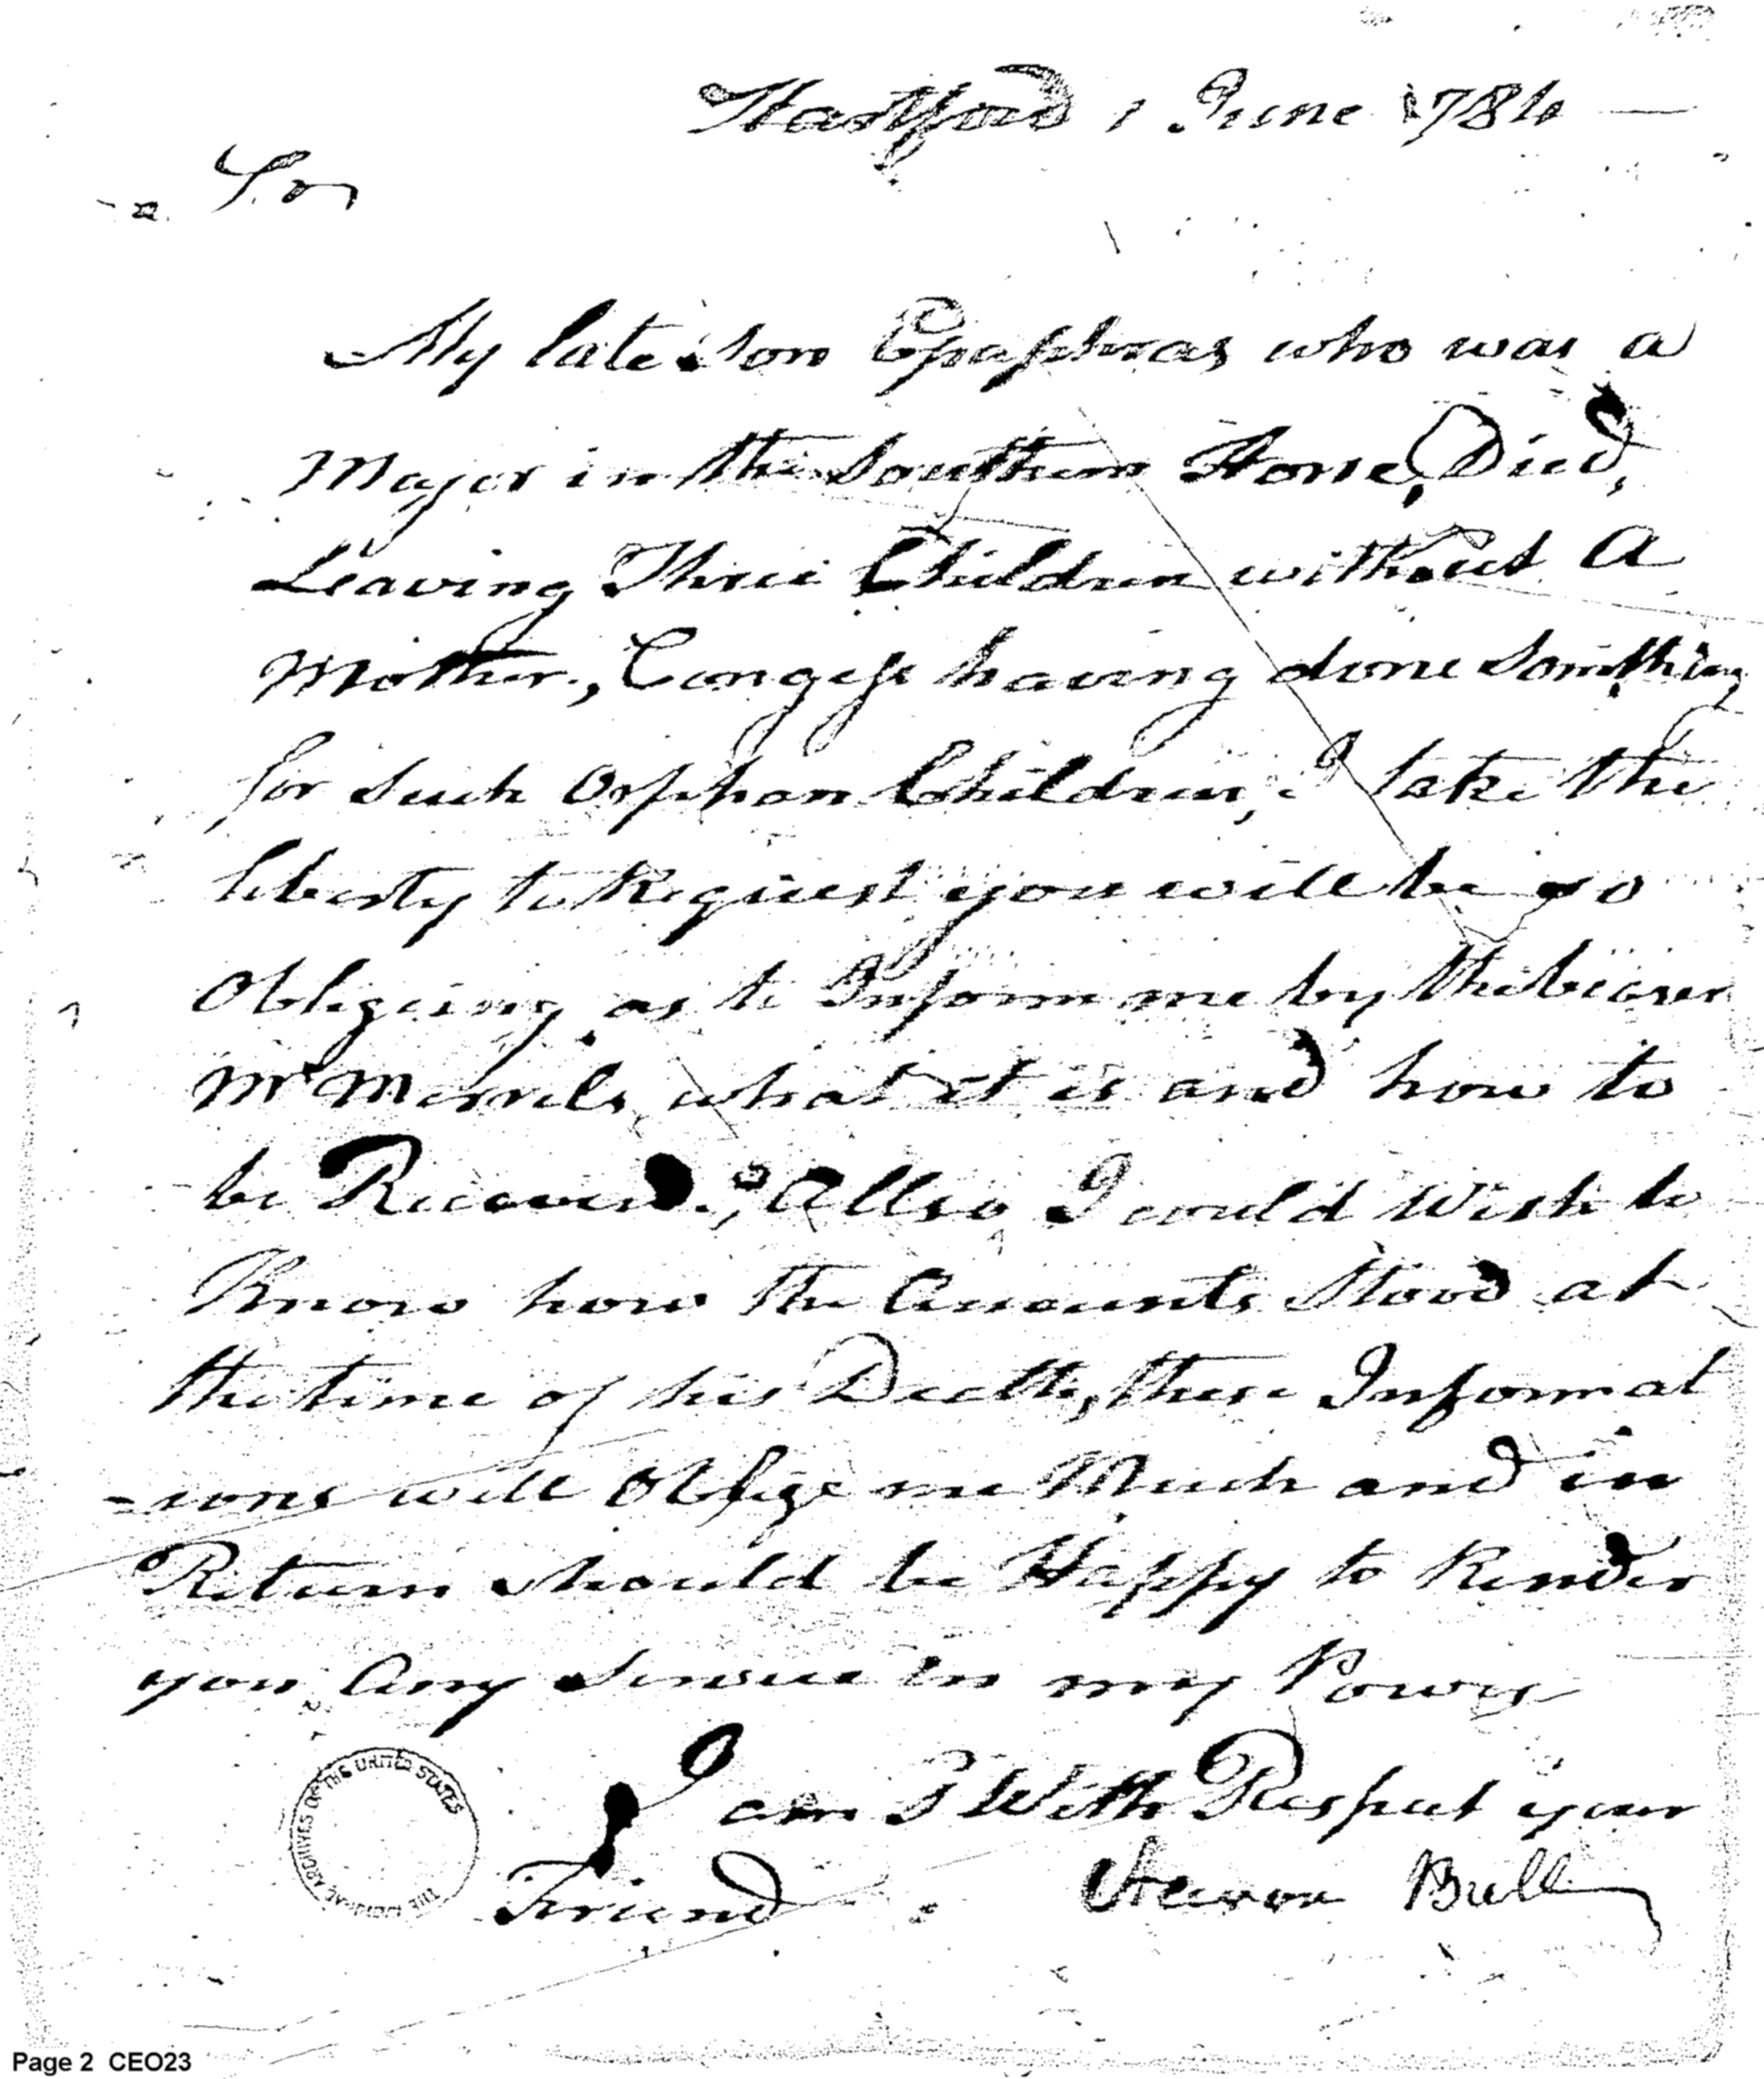 Hartford 1 June 1784
Sir
My late Son Epaphras who was a
Major in the Southern Horse, Died,
Leaving Three Children without A
Mother, Congess having done Something
for Such Orphan Children, I take the
liberty to Request you will be so
Obligeing as to Inform me by the bearer
Mr Merrils what it is and how to
be Recoverd., Allso I could Wish to
Know how the Accounts Stood at
the time of his Death, these Informat
=ions will Oblige me Much and in
Return should be Happy to Render
you Any Service in my Power
I am S With Respect your
Friend
Aaron Bull
THE NATIONAL ARCHIVES OF THE UNITED STATES
Page 2 CEO23